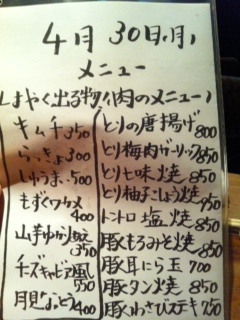 4月30日(月)
メニュー
しはやく出る物
キムチ 350
らっきょ 300
しゅうまい 500
もずくワカメ 400
山芋ゆかり和え 350
チーズキャビア風 550
月見なっとう 400
(肉のメニュー)
とりの唐揚げ 800
とり梅肉ガーリック 850
とり七味焼 850
とり柚子こしょう焼 950
トントロ塩焼 850
豚もろみそ焼 850
豚耳にら玉 700
豚タン焼 850
豚わさびステキ 750